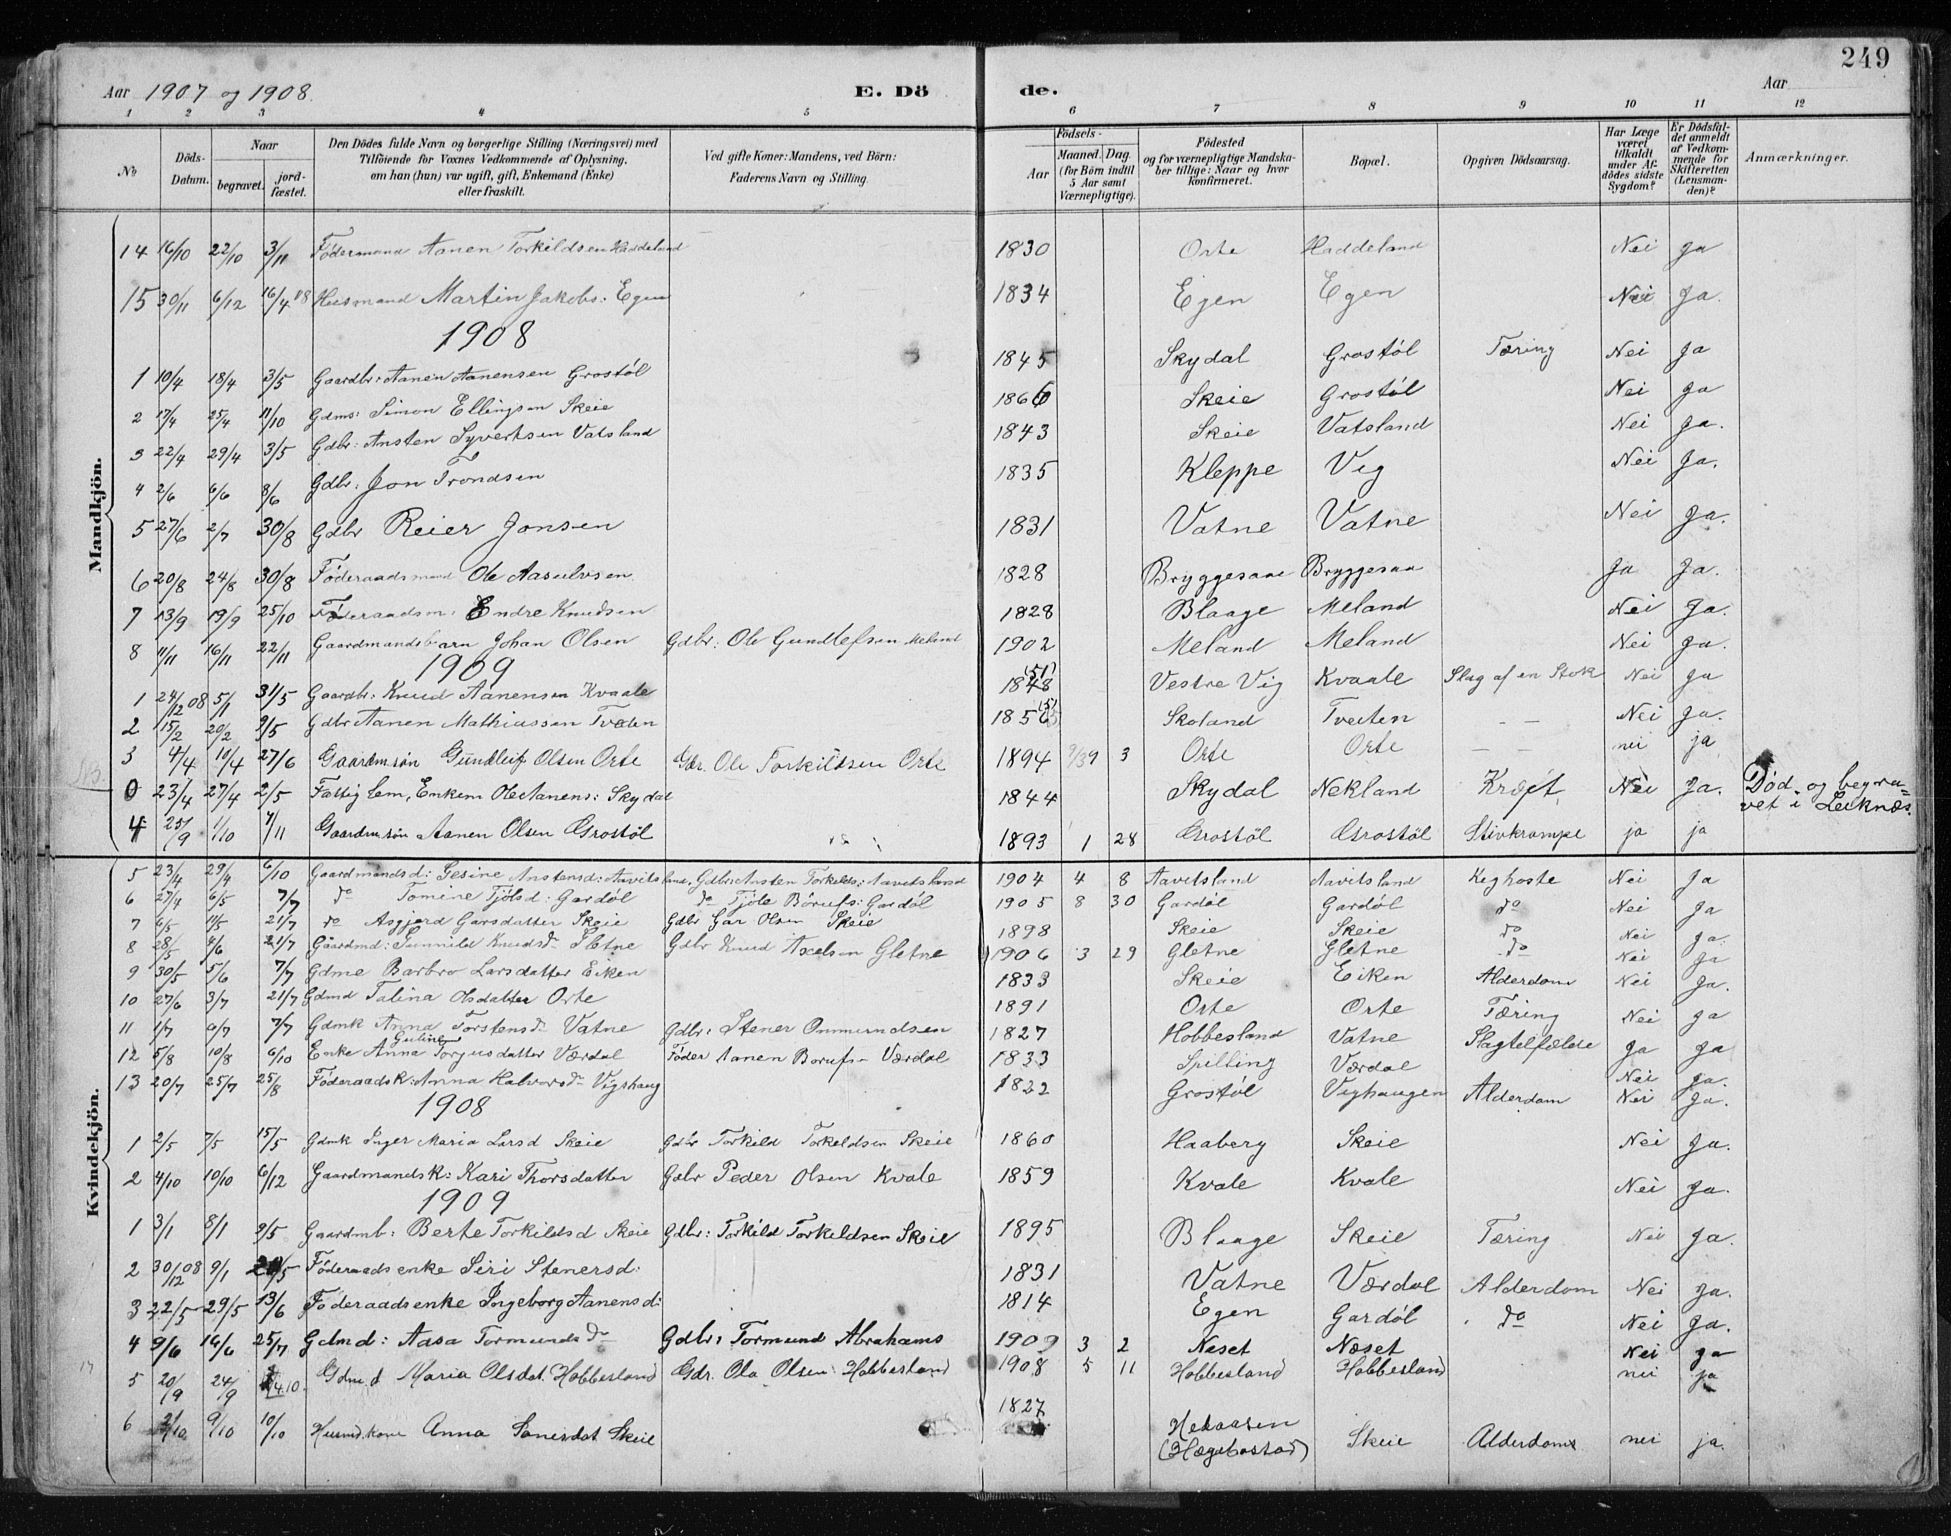 249
Aar 1907 og 1908. E. Dö de. Aar
1 2 3 4 5 6 7 8 9 10 11 12
No Döds-Datum. Naar begravet. jord-fæstet. Den Dödes fulde Navn og borgerlige Stilling (Næringsvei) med Tilföiende for Voxnes Vedkommende af Oplysning, om han (hun) var ugift, gift, Enkemand (Enke) eller fraskilt. Ved gifte Koner: Mandens, ved Börn: Faderens Navn og Stilling. Födsels- Aar Maaned. Dag. (for Börn indtil 5 Aar samt Værnepligtige). Födested og for værnepligtige Mandskaber tillige: Naar og hvor konfirmeret. Bopæl. Opgiven Dödsaarsag. Har Læge været tilkaldt under Afdödes sidste Sygdom? Er Dödsfaldet anmeldt af Vedkommende for Skifteretten (Lensmanden)? Anmærkninger.
Mandkjön.
14 16/10 22/10 3/11 Födermand Aanen Torkildsen Haddeland 1830 Orte Haddeland Nei Ja
15 30/11 6/12 16/4 08 Husmand Martin Jakobs: Egen 1834 Egen Egen Nei Ja.
1908
1 10/4 18/4 3/5 Gaardbr: Aanen Aanensen Grostöl 1845 Skydal Grostöl Tæring Nei Ja
2 17/4 25/4 11/10 Gdms: Simon Ellingsen Skeie 1866 Skeie Grostöl Nei Ja
3 22/4 29/4 3/5 Gdbr: Ansten Syvertsen Vatsland 1843 Skeie Vatsland Nei Ja.
4 2/6 6/6 8/6 Gdbr: Jon Trondsen 1835 Kleppe Vig Nei Ja.
5 27/6 2/7 30/8 Gdbr Reier Jonsen 1831 Vatne Vatne Nei Ja.
6 20/8 24/8 30/8 Föderaadsmand Ole Aasulvsen 1828 Bryggesaae Bryggesaa Ja Ja.
7 13/9 19/9 25/10 Föderaadsm: Endre Knudsen 1828 Blaage Meland Nei Ja.
8 11/11 16/11 22/11 Gaardmandsbarn Johan Olsen Gdbr: Ole Gundlefsen Meland 1902 Meland Meland Nei Ja.
1909
1 24/12 08 5/1 31/5 Gaardbr: Knud Aanensen Kvaale 1848 (51) Vestre Vig Kvaale Slag af en Stok Nei Ja
2 15/2 20/2 9/5 Gdbr Aanen Mathiassen Tveden Skoland Tveiten — — Nei Ja.
3 4/4 10/4 27/6 Gaardmsön Gundleif Olsen Orte Gdr. Ole Torkildsen Orte 1894 3 Orte Orte — — nei ja
0 23/4 27/4 2/5 Fattiglem, Enkem Ole Aanens: Skydal 1844 Skydal Nekland Kræft Nei Ja. Död og begra=
vet i Leiknæs.
4 25/9 1/10 7/11 Gaardmsön Aanen Olsen Grostöl 1893 1 28 Grostöl Grostöl Stivkrampe ja ja
Kvindekjön.
5 23/4 29/4 6/10 Gaardmandsd: Gesine Anstensd: Aavitsland, Gdbr: Ansten Torkilds: Aavitsland 1904 4 8 Aavitsland Aavitsland Kighoste Nei Ja
6 27/4 6/5 7/7 do Tomine Tjölsd: Gardöl do Tjöle Börufs: Gardöl 1905 8 30 Gardöl Gardöl do Nei Ja
7 6/5 11/5 21/7 do Asgjerd Garsdatter Skeie Gdbr Gar Olsen Skeie 1898 Skeie Skeie do Nei Ja
8 28/5 4/6 21/7 Gaardmd: Gunnild Knudsd Gletne Gdbr Knud Axelsen Gletne 1906 3 29 Gletne Gletne do Nei Ja
9 30/5 5/6 7/7 Gdme Barbro Larsdatter Eiken 1833 Skeie Eiken Alderdom Nei Ja.
10 27/6 3/7 21/7 Gdmd Talina Olsdatter Orte 1891 Orte Orte Tæring Nei Ja
11 1/7 9/7 7/7 Gdmk Anna Torstensd Vatne Gdbr: Stener Ommundsen 1827 Hobbesland Vatne Slagtilfælde Ja Ja
12 5/8 10/8 6/10 Enke Anna Guline Torjusdatter Værdal Föder Aanen Borufs- Værdal 1833 Spilling Værdal Nei Ja.
13 20/7 25/7 25/8 Föderaadsk: Anna Halvorsd Vigshaug 1822 Grostöl Vighaugen Alderdom Nei Ja.
1908
1 2/5 7/5 15/5 Gdmk Inger Maria Larsd Skeie Gdbr Torkild Torkeldsen Skeie 1860 Haaberg Skeie Nei Ja.
2 4/10 10/10 6/12 Gaardmandsk: Kari Thorsdatter Gdbr Peder Olsen Kvale 1859 Kvale Kvale Nei Ja.
1909
1 3/1 8/1 9/5 Gaardmb: Berte Torkildsd Skeie Gdbr: Torkild Torkeldsen Skeie 1895 Blaage Skeie Tæring Nei Ja.
2 30/12 08 9/1 Föderaadsenke Siri Stenersd: 1831 Vatne Værdal Alderdom Nei Ja.
3 22/5 29/5 13/6 Föderaadsenke Ingeborg Aanensd: 1814 Egen Gardöl do Nei Ja.
4 9/6 16/6 25/7 Gdmd: Aasa Tormundsd Gdbr: Tormund Abrahams 1909 3 2 Neset Næset Nei Ja
5 20/9 24/9 Gdmd Maria Olsdat. Hobbesland Gdr. Ola Olsen Hobbesland 1908 5 11 Hobbesland Hobbesland nei ja
6 9/10 10/10 Husmd.kone Anna Sanersdat Skeie 1827 Hekaasen
(Hægebostad) Skeie Alderdom nei ja.